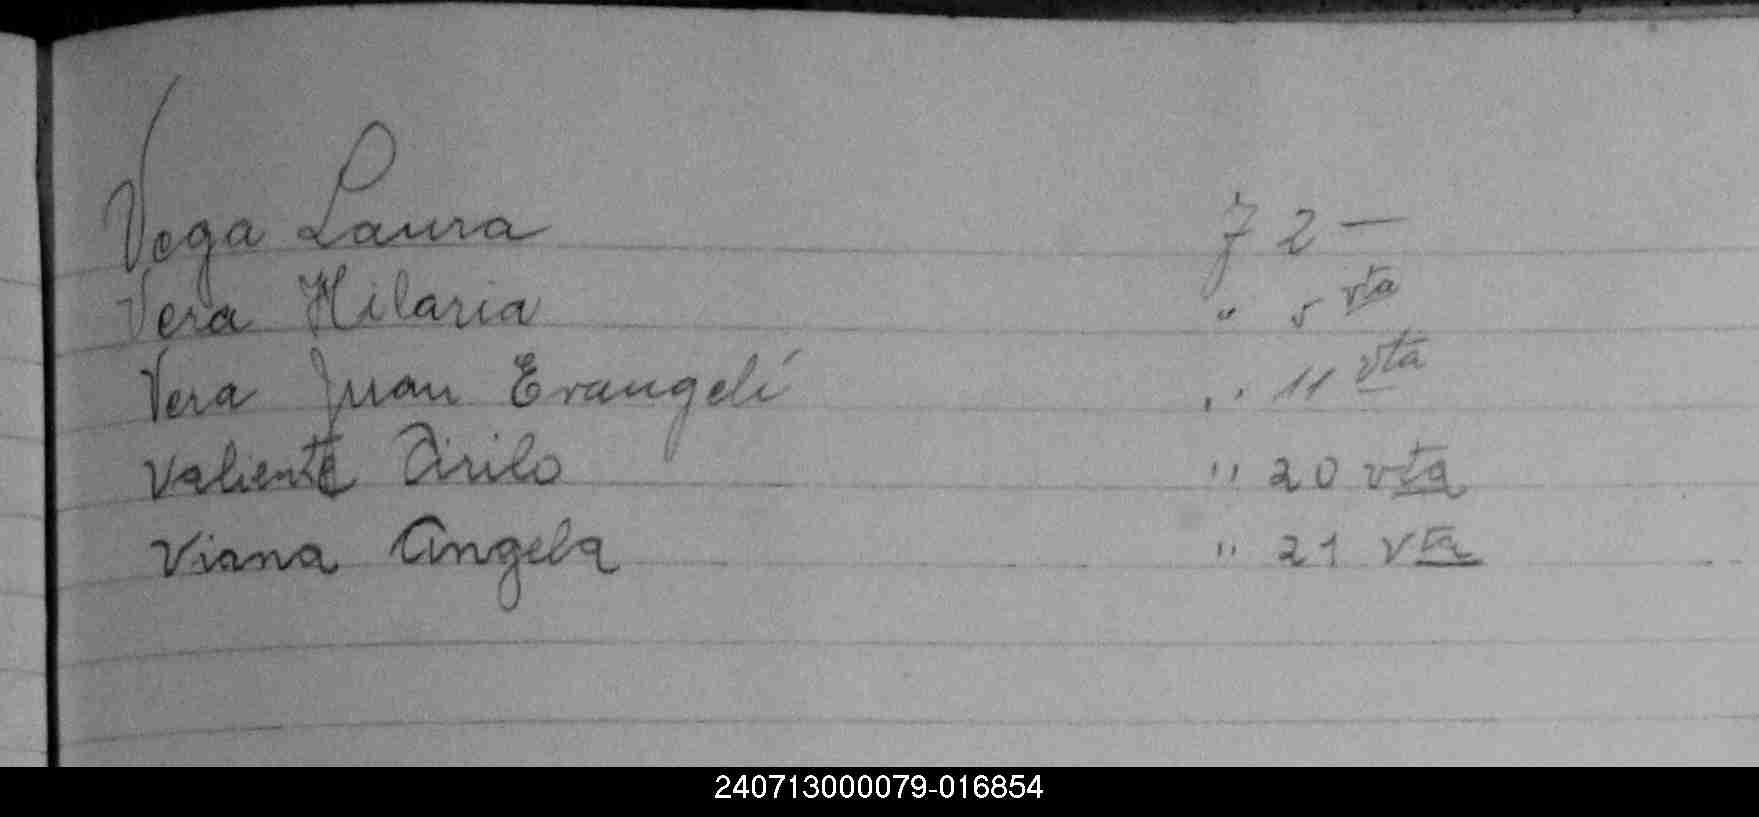 Vega Laura f 2 —
Vera Hilaria " 5 vta
Vera Juan Evangelí " 11 vta
Valiente Cirilo " 20 vta
Viana Angela " 21 vta
240713000079-016854